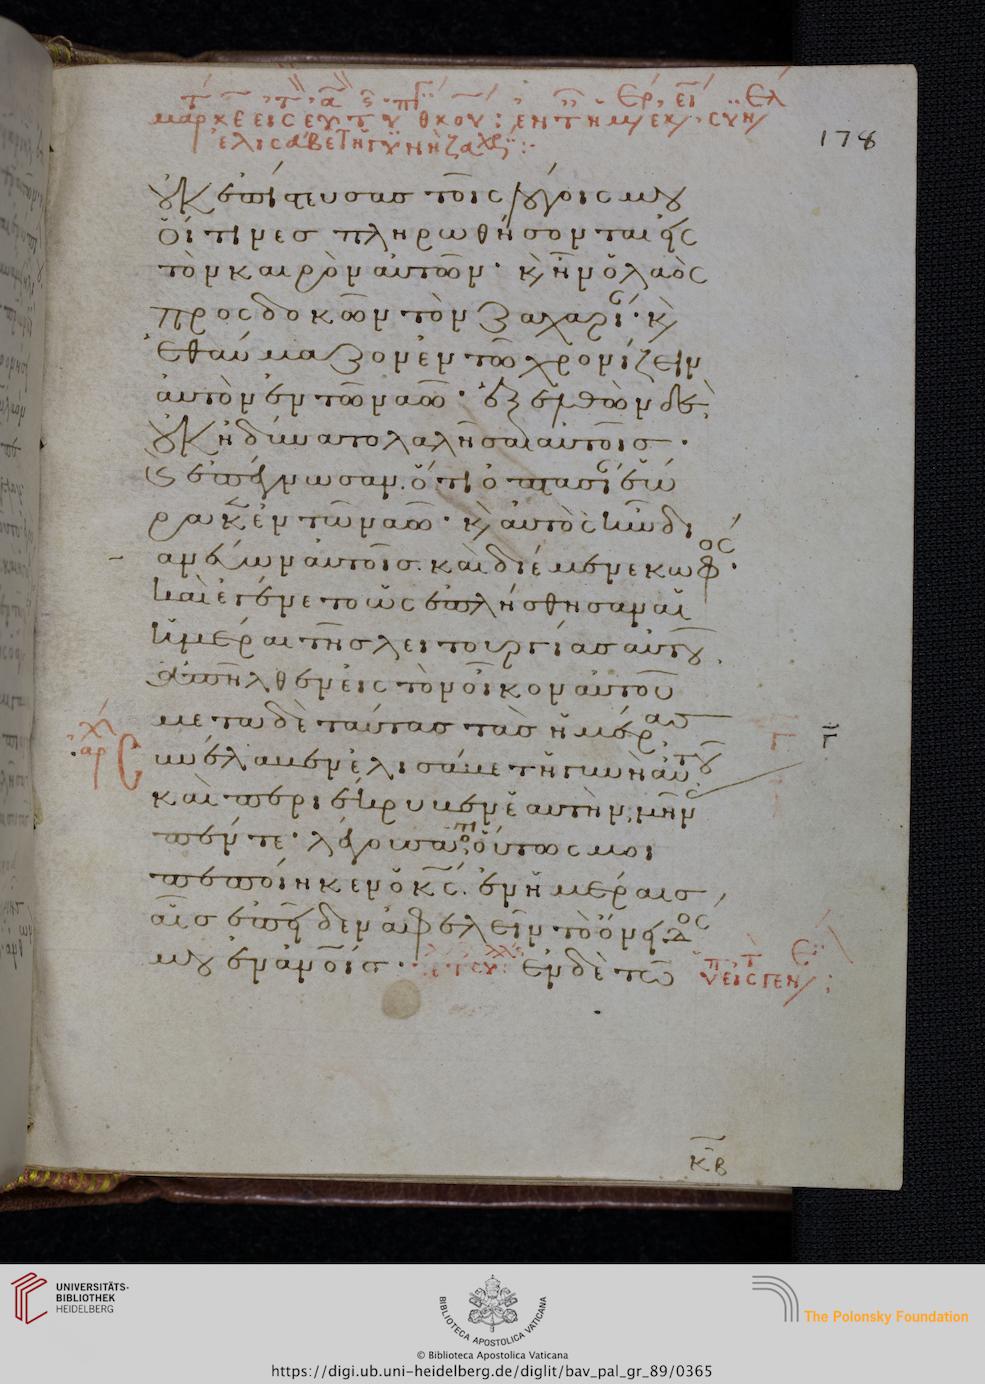 178
οὐκ ἐπίστευσας τοῖς λόγοις μου
οἵτινες πληρωθήσονται εἰς
τὸν καιρὸν αὐτῶν· κ(αὶ) ἦν ὁ λαὸς
προσδοκῶν τὸν Ζαχαρί· κ(αὶ)
ἐθαύμαζον ἐν τῶ χρονίζειν
αὐτὸν ἐν τῶ ναῶ· ἐξελθὼν δὲ
οὐκ ἠδύνατο λαλῆσαι αὐτοῖς·
κ(αὶ) ἐπέγνωσαν ὅτι ὀπτασί ἑώ
ρακεν ἐν τῶ ναῶ· κ(αὶ) αὐτὸς ἦν δι
ανεύων αὐτοῖς· καὶ διέμενε κωφος·
καὶ ἐγένετο ὡς ἐπλήσθησαν αἱ
ἡμέραι τῆς λειτουργίας αὐτοῦ
ἀπῆλθεν εἰς τὸν οἶκον αὐτοῦ
μετὰ δὲ ταύτας τὰς ἡμέρας
συνέλαβεν ἐλισάβετ ἡ γυνὴ αὐτοῦ
καὶ περιέκρυβεν ἑαυτὴν μῆνας
πέντε· λέγουσα ὅτι οὕτως μοι
πεποίηκεν ὁ κς ἐν ἡμέραις
αἷς ἐπεῖδεν ἀφελεῖν τὸ ὄνειδος
μου ἐν ἀνοις· ἐν δὲ τῶ
κβ
UNIVERSITÄTS-
BIBLIOTHEK
HEIDELBERG
BIBLIOTECA APOSTOLICA VATICANA
The Polonsky Foundation
© Biblioteca Apostolica Vaticana
https://digi.ub.uni-heidelberg.de/diglit/bav_pal_gr_89/0365